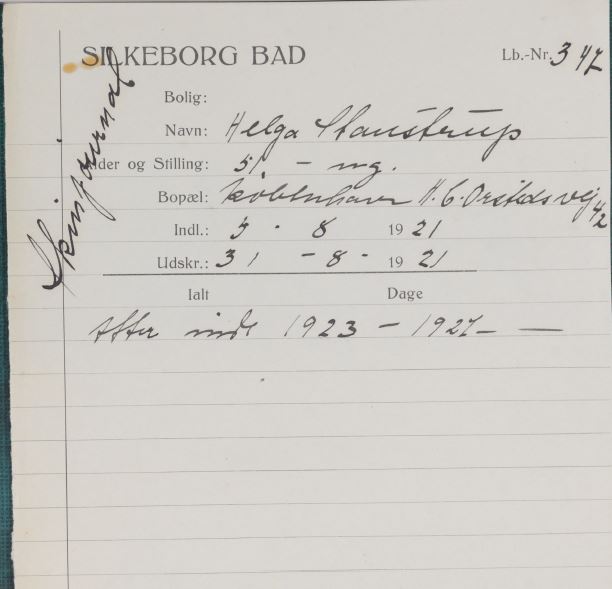 SILKEBORG BAD
Lb.-Nr. 347
Skinjournal
Bolig:
Navn: Helga Stanstrup
Alder og Stilling: 51 - ug.
Bopæl: København H. C. Ørstedsvej 42
Indl.: 5 - 8 1921
Udskr.: 31 - 8 - 1921
Ialt Dage
Efter inde 1923 - 1927 - —